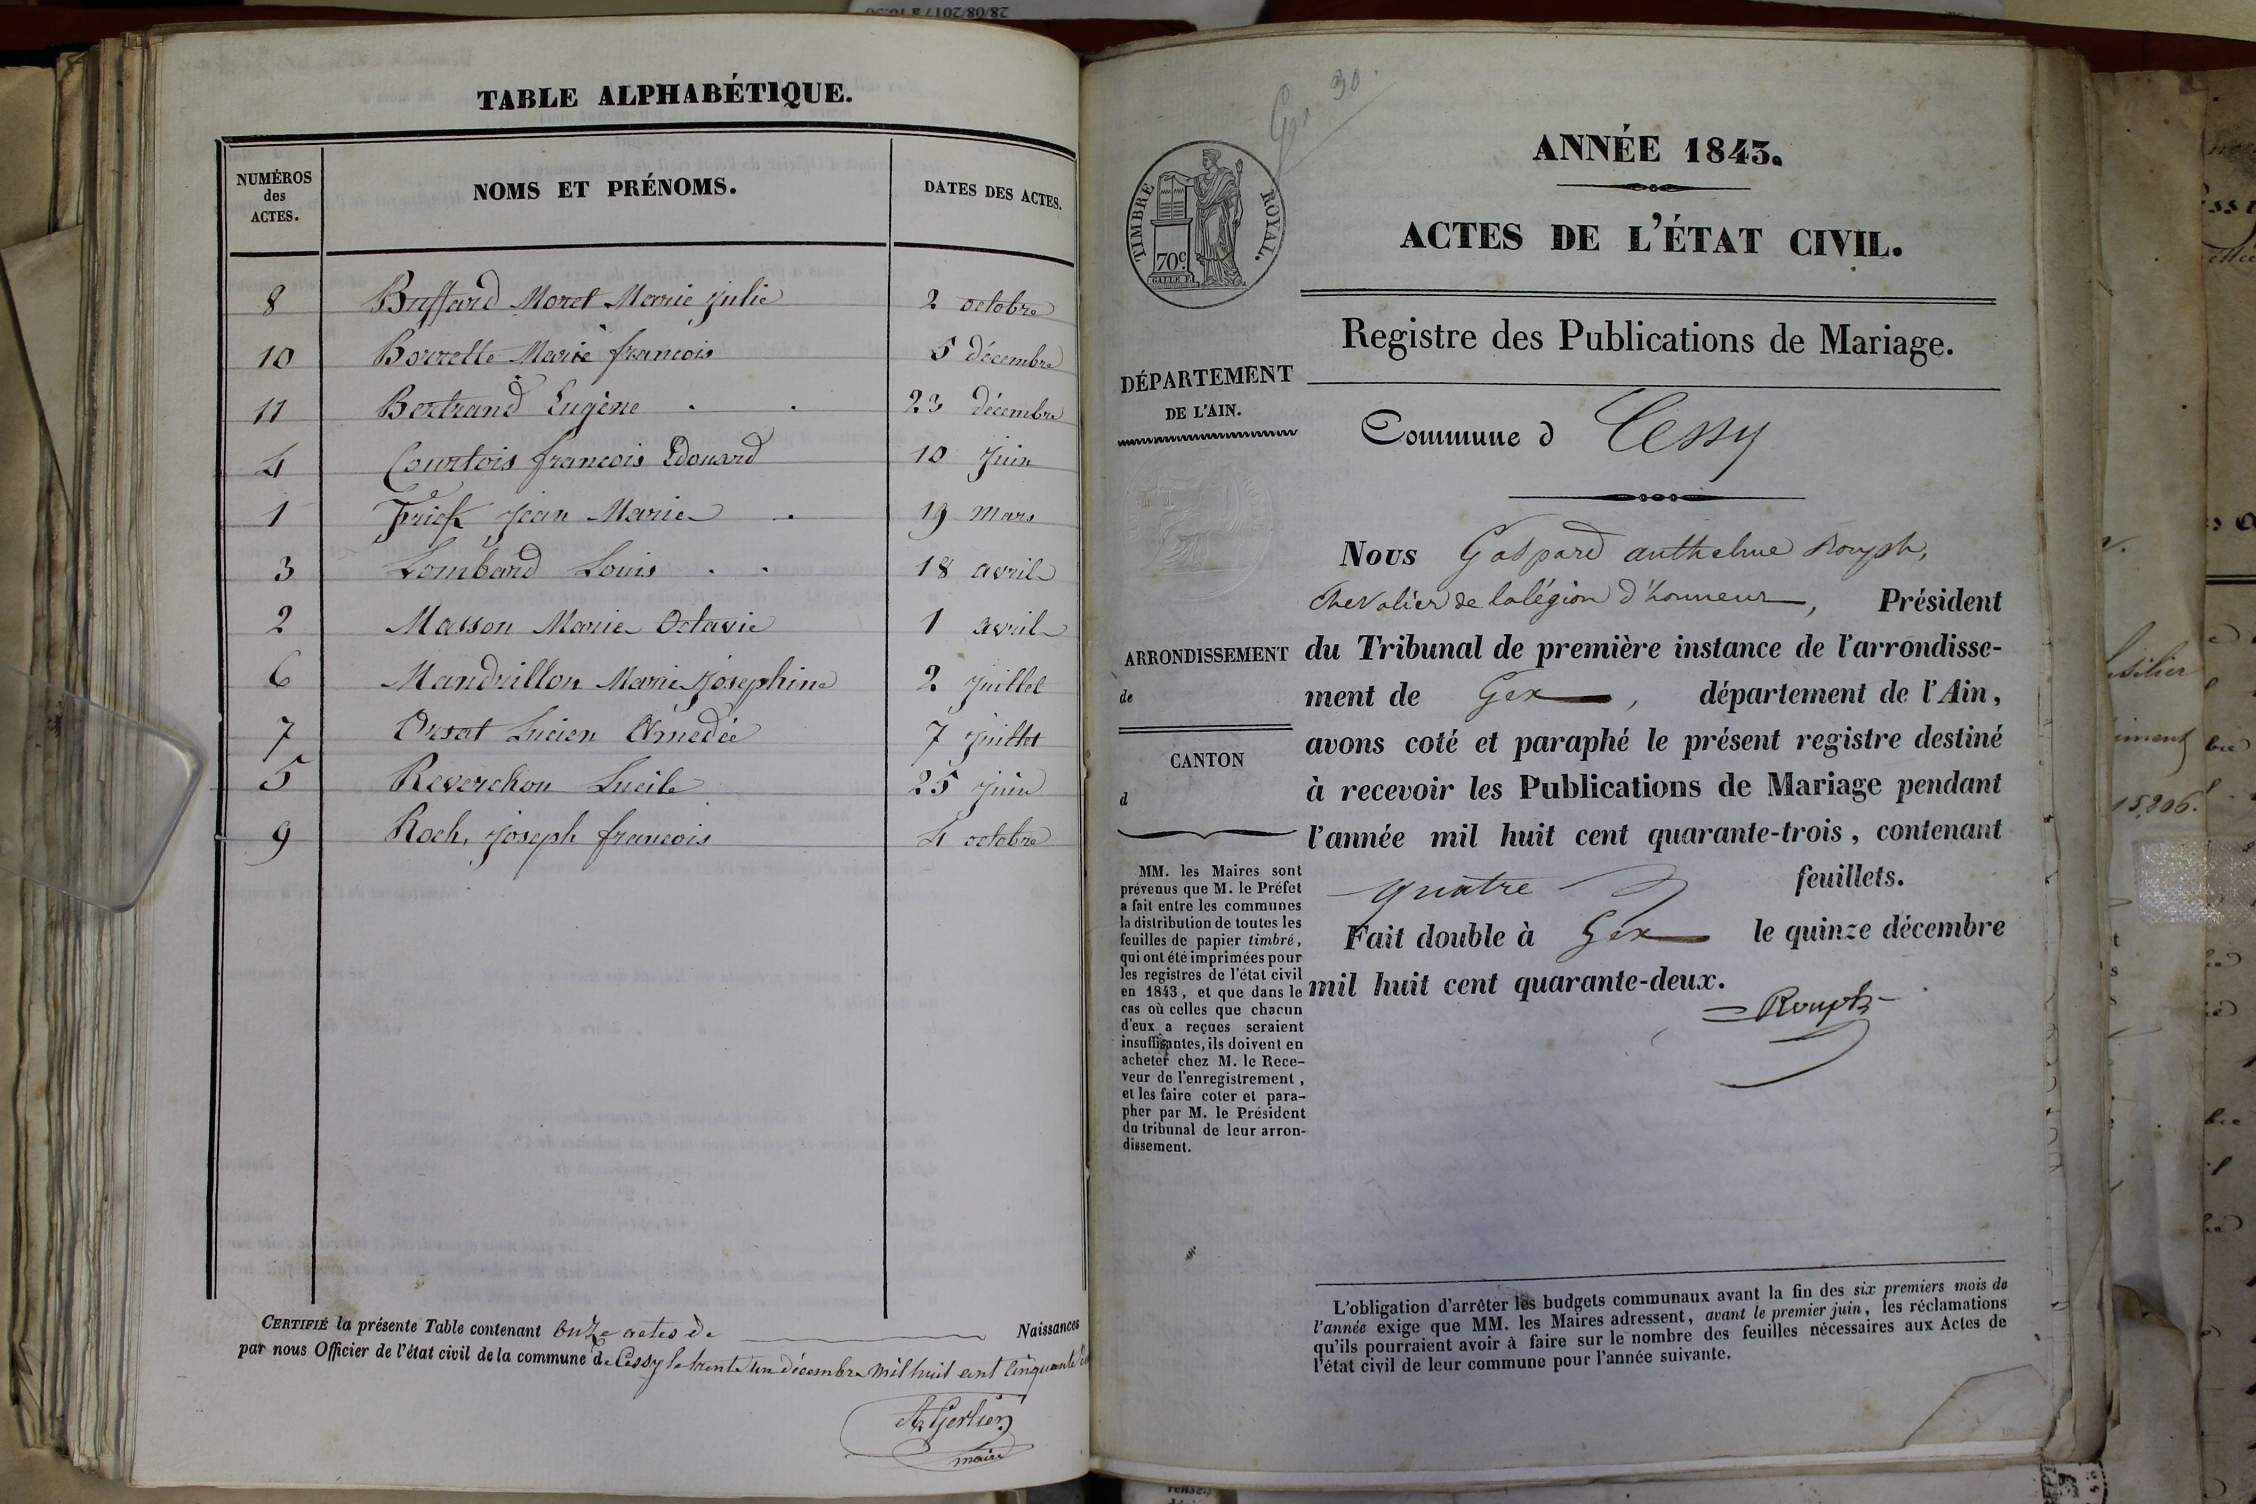 TABLE ALPHABÉTIQUE.
NUMÉROS des ACTES. NOMS ET PRÉNOMS. DATES DES ACTES.
8 Buffard Moret Marie Julie 2 octobre
10 Borrelle Marie françois 5 décembre
11 Bertrand Eugène 23 décembre
4 Courtois françois Edouard 10 Juin
1 frick Jean Marie 19 Mars
3 Lombard Louis 18 avril
2 Masson Marie Octavie 1 avril
6 Mandrillon Marie Joséphine 2 Juillet
7 Orsat Lucien Amedée 7 Juillet
5 Reverchon Lucile 25 Juin
9 Roch, Joseph françois 4 octobre
CERTIFIÉ la présente Table contenant Onze actes de Naissances
par nous Officier de l'état civil de la commune de Cessy le trente un décembre mil huit cent cinquante
A. Gerlier
maire
28/08/2017
Gr 30
TIMBRE ROYAL.
70c
ANNÉE 1843.
ACTES DE L'ÉTAT CIVIL.
Registre des Publications de Mariage.
DÉPARTEMENT
DE L'AIN.
Commune d Cessy
Nous Gaspard anthelme Rouph,
chevalier de la légion d'honneur, Président
ARRONDISSEMENT
de
du Tribunal de première instance de l'arrondisse-
ment de Gex, département de l'Ain,
avons coté et paraphé le présent registre destiné
à recevoir les Publications de Mariage pendant
l'année mil huit cent quarante-trois, contenant
quatre feuillets.
Fait double à Gex le quinze décembre
mil huit cent quarante-deux.
Rouph
CANTON
d
MM. les Maires sont
prévenus que M. le Préfet
a fait entre les communes
la distribution de toutes les
feuilles de papier timbré,
qui ont été imprimées pour
les registres de l'état civil
en 1843, et que dans le
cas où celles que chacun
d'eux a reçues seraient
insuffisantes, ils doivent en
acheter chez M. le Rece-
veur de l'enregistrement,
et les faire coter et para-
pher par M. le Président
du tribunal de leur arron-
dissement.
L'obligation d'arrêter les budgets communaux avant la fin des six premiers mois de
l'année exige que MM. les Maires adressent, avant le premier juin, les réclamations
qu'ils pourraient avoir à faire sur le nombre des feuilles nécessaires aux Actes de
l'état civil de leur commune pour l'année suivante.